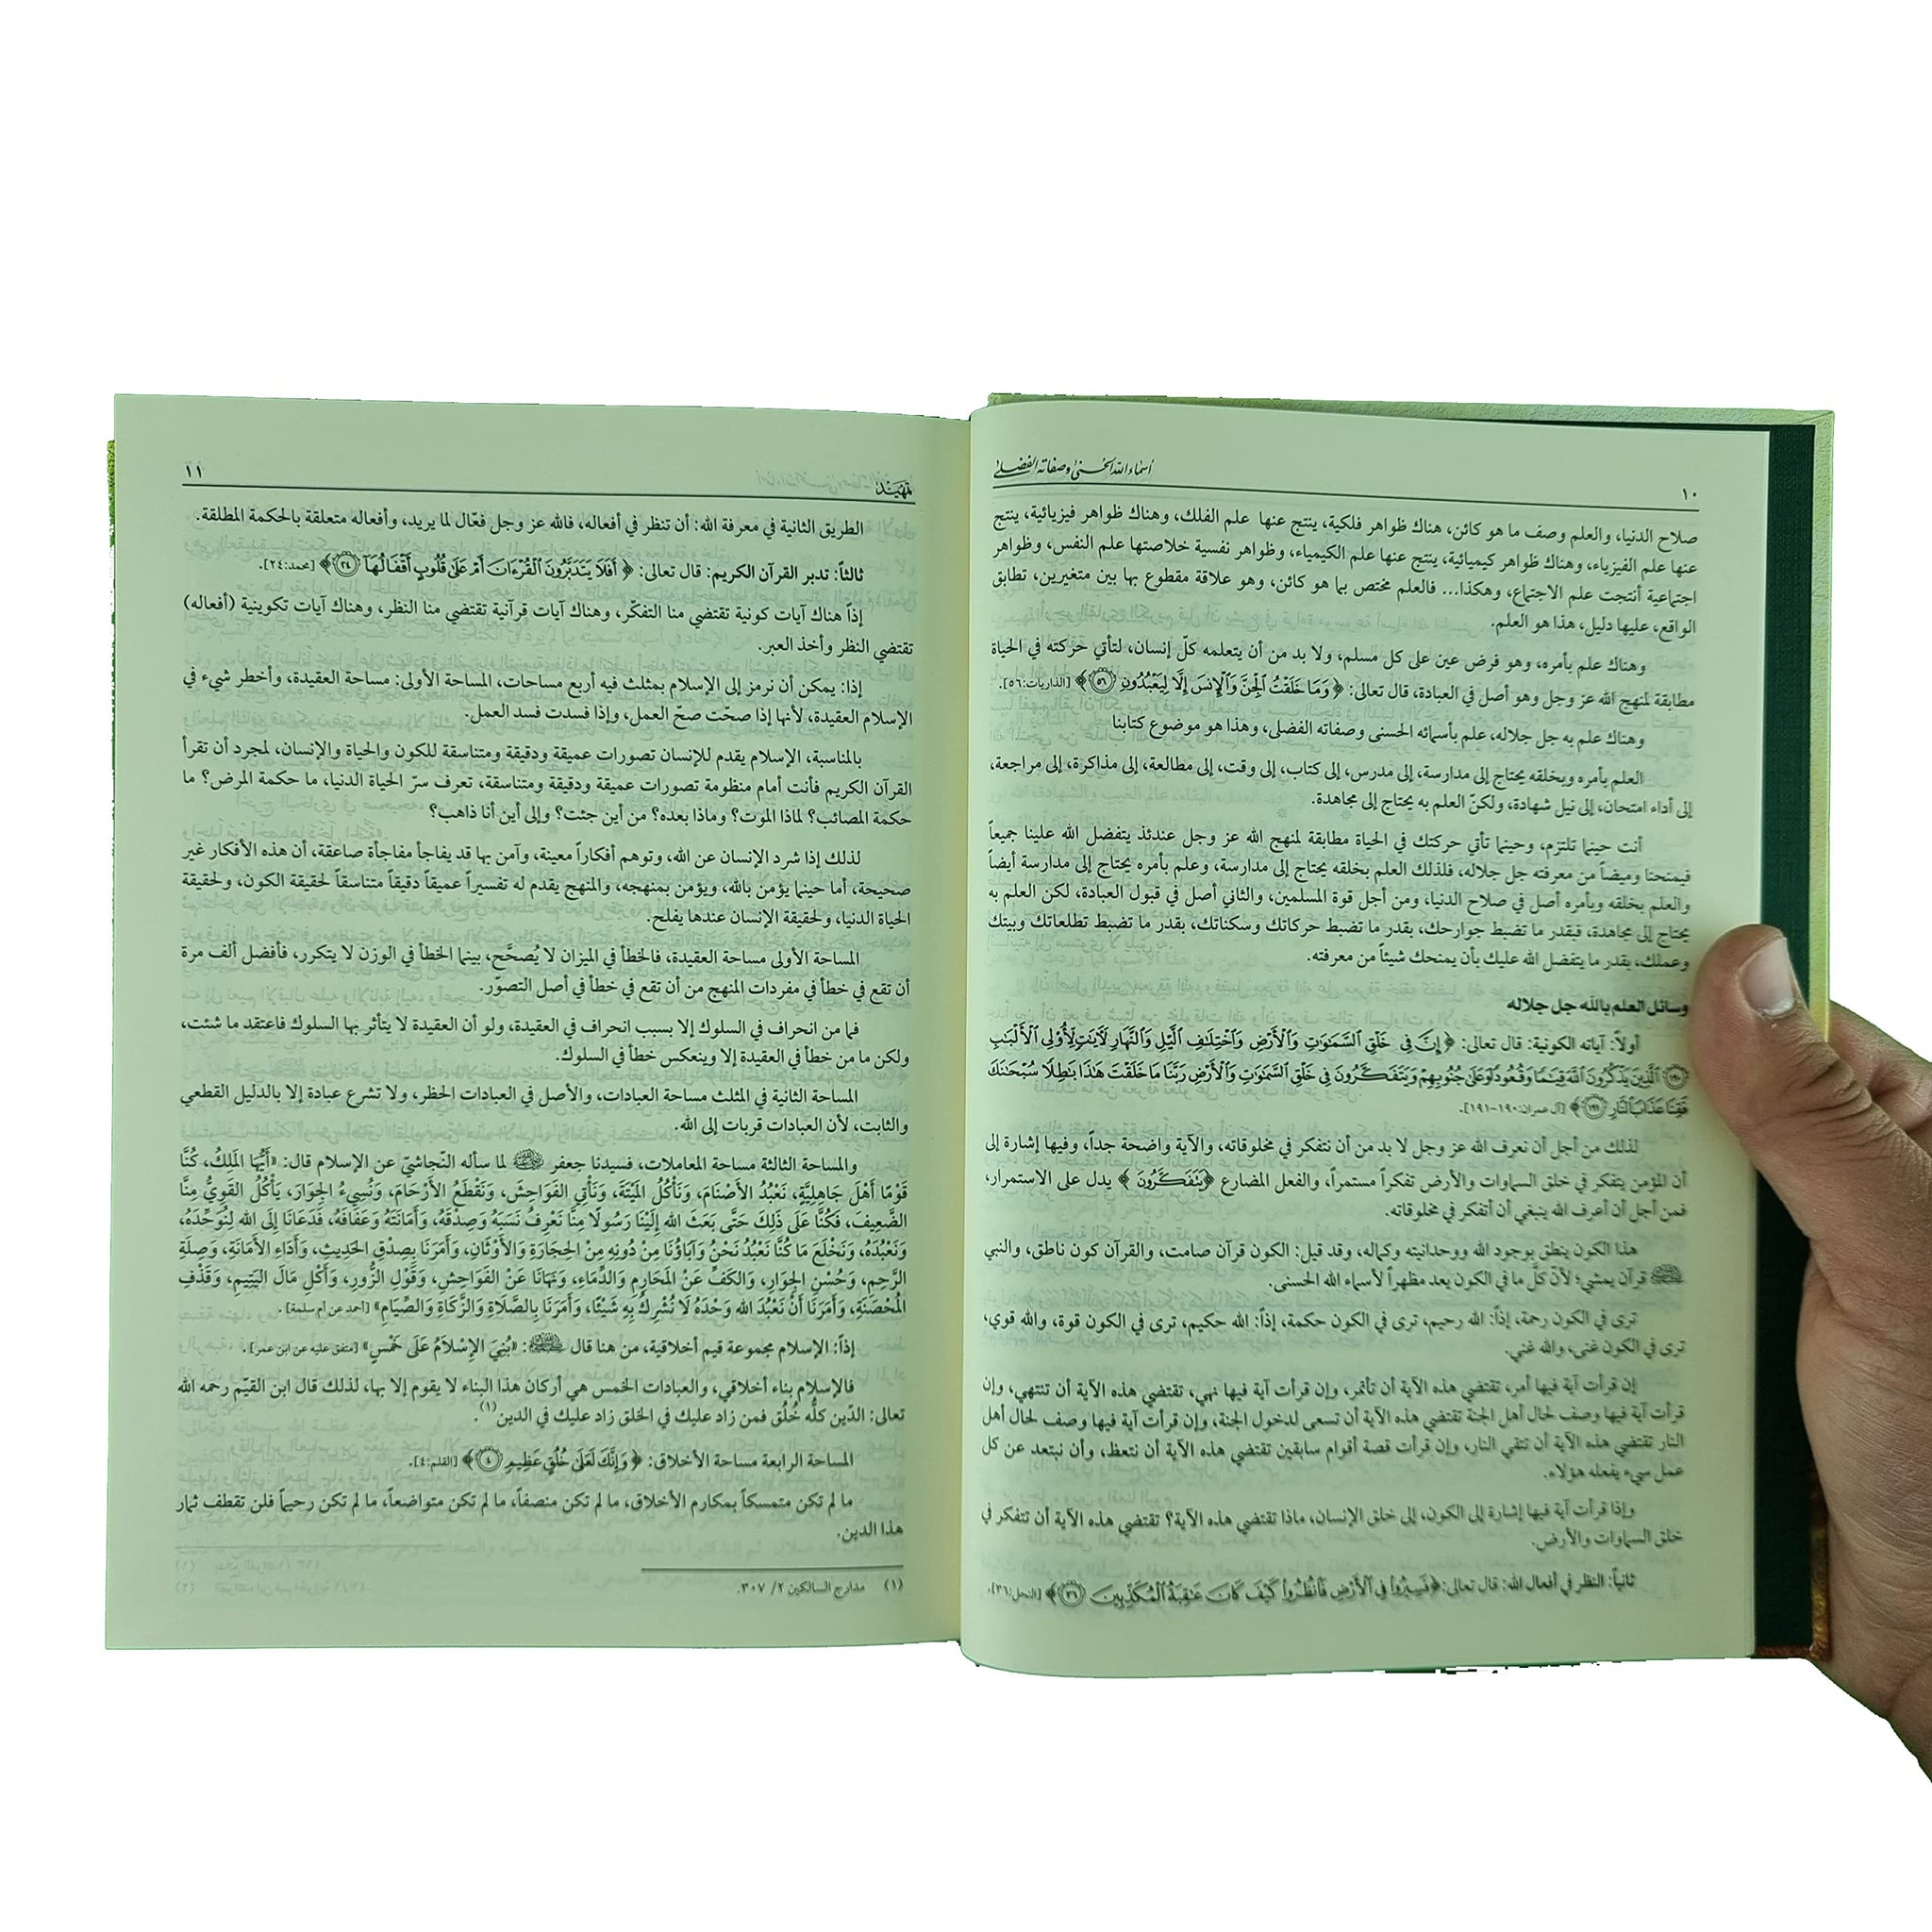 أسماء الله الحسنى وصفاته الفضلى
١٠
صلاح الدنيا، والعلم وصف ما هو كائن، هناك ظواهر فلكية، ينتج عنها علم الفلك، وهناك ظواهر فيزيائية، ينتج
عنها علم الفيزياء، وهناك ظواهر كيميائية، ينتج عنها علم الكيمياء، وظواهر نفسية خلاصتها علم النفس، وظواهر
اجتماعية أنتجت علم الاجتماع، وهكذا... فالعلم مختص بما هو كائن، وهو علاقة مقطوع بها بين متغيرين، تطابق
الواقع، عليها دليل، هذا هو العلم.
وهناك علم بأمره، وهو فرض عين على كل مسلم، ولا بد من أن يتعلمه كلّ إنسان، لتأتي حركته في الحياة
مطابقة لمنهج الله عز وجل وهو أصل في العبادة، قال تعالى: ﴿ وَمَا خَلَقْتُ ٱلْجِنَّ وَٱلْإِنسَ إِلَّا لِيَعْبُدُونِ ٥٦ ﴾ [الذاريات:٥٦].
وهناك علم به جل جلاله، علم بأسمائه الحسنى وصفاته الفضلى، وهذا هو موضوع كتابنا
العلم بأمره وبخلقه يحتاج إلى مدارسة، إلى مدرس، إلى كتاب، إلى وقت، إلى مطالعة، إلى مذاكرة، إلى مراجعة،
إلى أداء امتحان، إلى نيل شهادة، ولكنّ العلم به يحتاج إلى مجاهدة.
أنت حينما تلتزم، وحينما تأتي حركتك في الحياة مطابقة لمنهج الله عز وجل عندئذ يتفضل الله علينا جميعاً
فيمنحنا وميضاً من معرفته جل جلاله، فلذلك العلم بخلقه يحتاج إلى مدارسة، وعلم بأمره يحتاج إلى مدارسة أيضاً
والعلم بخلقه وبأمره أصل في صلاح الدنيا، ومن أجل قوة المسلمين، والثاني أصل في قبول العبادة، لكن العلم به
يحتاج إلى مجاهدة، فبقدر ما تضبط جوارحك، بقدر ما تضبط حركاتك وسكناتك، بقدر ما تضبط تطلعاتك وبيتك
وعملك، بقدر ما يتفضل الله عليك بأن يمنحك شيئاً من معرفته.
وسائل العلم بالله جل جلاله
أولاً: آياته الكونية: قال تعالى: ﴿ إِنَّ فِي خَلْقِ ٱلسَّمَٰوَٰتِ وَٱلْأَرْضِ وَٱخْتِلَٰفِ ٱلَّيْلِ وَٱلنَّهَارِ لَءَايَٰتٍ لِّأُو۟لِي ٱلْأَلْبَٰبِ
١٩٠ ٱلَّذِينَ يَذْكُرُونَ ٱللَّهَ قِيَٰمًا وَقُعُودًا وَعَلَىٰ جُنُوبِهِمْ وَيَتَفَكَّرُونَ فِي خَلْقِ ٱلسَّمَٰوَٰتِ وَٱلْأَرْضِ رَبَّنَا مَا خَلَقْتَ هَٰذَا بَٰطِلًا سُبْحَٰنَكَ
فَقِنَا عَذَابَ ٱلنَّارِ ١٩١ ﴾ [آل عمران:١٩٠-١٩١].
لذلك من أجل أن نعرف الله عز وجل لا بد من أن نتفكر في مخلوقاته، والآية واضحة جداً، وفيها إشارة إلى
أن المؤمن يتفكر في خلق السماوات والأرض تفكراً مستمراً، والفعل المضارع ﴿يَتَفَكَّرُونَ ﴾ يدل على الاستمرار،
فمن أجل أن أعرف الله ينبغي أن أتفكر في مخلوقاته.
هذا الكون ينطق بوجود الله ووحدانيته وكماله، وقد قيل: الكون قرآن صامت، والقرآن كون ناطق، والنبي
ﷺ قرآن يمشي؛ لأنّ كلَّ ما في الكون يعد مظهراً لأسماء الله الحسنى.
ترى في الكون رحمة، إذاً: الله رحيم، ترى في الكون حكمة، إذاً: الله حكيم، ترى في الكون قوة، والله قوي،
ترى في الكون غنى، والله غني.
إن قرأت آية فيها أمر، تقتضي هذه الآية أن تأتمر، وإن قرأت آية فيها نهي، تقتضي هذه الآية أن تنتهي، وإن
قرأت آية فيها وصف لحال أهل الجنة تقتضي هذه الآية أن تسعى لدخول الجنة، وإن قرأت آية فيها وصف لحال أهل
النار تقتضي هذه الآية أن تتقي النار، وإن قرأت قصة أقوام سابقين تقتضي هذه الآية أن نتعظ، وأن نبتعد عن كل
عمل سيء يفعله هؤلاء.
وإذا قرأت آية فيها إشارة إلى الكون، إلى خلق الإنسان، ماذا تقتضي هذه الآية؟ تقتضي هذه الآية أن تتفكر في
خلق السماوات والأرض.
ثانياً: النظر في أفعال الله: قال تعالى:﴿فَسِيرُوا۟ فِي ٱلْأَرْضِ فَٱنظُرُوا۟ كَيْفَ كَانَ عَٰقِبَةُ ٱلْمُكَذِّبِينَ ٣٦ ﴾ [النحل:٣٦].
تمهيد
١١
الطريق الثانية في معرفة الله: أن تنظر في أفعاله، فالله عز وجل فعّال لما يريد، وأفعاله متعلقة بالحكمة المطلقة.
ثالثاً: تدبر القرآن الكريم: قال تعالى: ﴿ أَفَلَا يَتَدَبَّرُونَ ٱلْقُرْءَانَ أَمْ عَلَىٰ قُلُوبٍ أَقْفَالُهَآ ٢٤ ﴾ [محمد:٢٤].
إذاً هناك آيات كونية تقتضي منا التفكّر، وهناك آيات قرآنية تقتضي منا النظر، وهناك آيات تكوينية (أفعاله)
تقتضي النظر وأخذ العبر.
إذا: يمكن أن نرمز إلى الإسلام بمثلث فيه أربع مساحات، المساحة الأولى: مساحة العقيدة، وأخطر شيء في
الإسلام العقيدة، لأنها إذا صحّت صحّ العمل، وإذا فسدت فسد العمل.
بالمناسبة، الإسلام يقدم للإنسان تصورات عميقة ودقيقة ومتناسقة للكون والحياة والإنسان، لمجرد أن تقرأ
القرآن الكريم فأنت أمام منظومة تصورات عميقة ودقيقة ومتناسقة، تعرف سرّ الحياة الدنيا، ما حكمة المرض؟ ما
حكمة المصائب؟ لماذا الموت؟ وماذا بعده؟ من أين جئت؟ وإلى أين أنا ذاهب؟
لذلك إذا شرد الإنسان عن الله، وتوهم أفكاراً معينة، وآمن بها قد يفاجأ مفاجأة صاعقة، أن هذه الأفكار غير
صحيحة، أما حينما يؤمن بالله، ويؤمن بمنهجه، والمنهج يقدم له تفسيراً عميقاً دقيقاً متناسقاً لحقيقة الكون، ولحقيقة
الحياة الدنيا، ولحقيقة الإنسان عندها يفلح.
المساحة الأولى مساحة العقيدة، فالخطأ في الميزان لا يُصحَّح، بينما الخطأ في الوزن لا يتكرر، فأفضل ألف مرة
أن تقع في خطأ في مفردات المنهج من أن تقع في خطأ في أصل التصوّر.
فما من انحراف في السلوك إلا بسبب انحراف في العقيدة، ولو أن العقيدة لا يتأثر بها السلوك فاعتقد ما شئت،
ولكن ما من خطأ في العقيدة إلا وينعكس خطأ في السلوك.
المساحة الثانية في المثلث مساحة العبادات، والأصل في العبادات الحظر، ولا تشرع عبادة إلا بالدليل القطعي
والثابت، لأن العبادات قربات إلى الله.
والمساحة الثالثة مساحة المعاملات، فسيدنا جعفر لما سأله النّجاشيّ عن الإسلام قال: «أَيُّهَا المَلِكُ، كُنَّا
قَوْمًا أَهْلَ جَاهِلِيَّةٍ، نَعْبُدُ الأَصْنَامَ، وَنَأْكُلُ المَيْتَةَ، وَنَأْتِي الفَوَاحِشَ، وَنَقْطَعُ الأَرْحَامَ، وَنُسِيءُ الجِوَارَ، يَأْكُلُ القَوِيُّ مِنَّا
الضَّعِيفَ، فَكُنَّا عَلَى ذَلِكَ حَتَّى بَعَثَ الله إِلَيْنَا رَسُولًا مِنَّا نَعْرِفُ نَسَبَهُ وَصِدْقَهُ، وَأَمَانَتَهُ وَعَفَافَهُ، فَدَعَانَا إِلَى الله لِنُوَحِّدَهُ،
وَنَعْبُدَهُ، وَنَخْلَعَ مَا كُنَّا نَعْبُدُ نَحْنُ وَآبَاؤُنَا مِنْ دُونِهِ مِنْ الحِجَارَةِ وَالأَوْثَانِ، وَأَمَرَنَا بِصِدْقِ الحَدِيثِ، وَأَدَاءِ الأَمَانَةِ، وَصِلَةِ
الرَّحِمِ، وَحُسْنِ الجِوَارِ، وَالكَفِّ عَنْ المَحَارِمِ وَالدِّمَاءِ، وَنَهَانَا عَنْ الفَوَاحِشِ، وَقَوْلِ الزُّورِ، وَأَكْلِ مَالَ اليَتِيمِ، وَقَذْفِ
المُحْصَنَةِ، وَأَمَرَنَا أَنْ نَعْبُدَ الله وَحْدَهُ لَا نُشْرِكُ بِهِ شَيْئًا، وَأَمَرَنَا بِالصَّلَاةِ وَالزَّكَاةِ وَالصِّيَامِ» [أحمد عن أم سلمة].
إذاً: الإسلام مجموعة قيم أخلاقية، من هنا قال ﷺ: «بُنِيَ الإِسْلَامُ عَلَى خَمْسٍ» [متفق عليه عن ابن عمر].
فالإسلام بناء أخلاقي، والعبادات الخمس هي أركان هذا البناء لا يقوم إلا بها، لذلك قال ابن القيّم رحمه الله
تعالى: الدّين كلُّه خُلُق فمن زاد عليك في الخلق زاد عليك في الدين(١).
المساحة الرابعة مساحة الأخلاق: ﴿ وَإِنَّكَ لَعَلَىٰ خُلُقٍ عَظِيمٍ ٤ ﴾ [القلم:٤].
ما لم تكن متمسكاً بمكارم الأخلاق، ما لم تكن منصفاً، ما لم تكن متواضعاً، ما لم تكن رحيماً فلن تقطف ثمار
هذا الدين.
(١) مدارج السالكين ٢/ ٣٠٧.